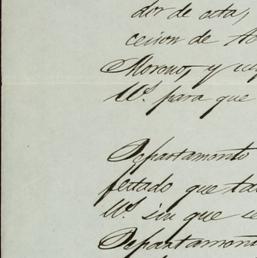 dor de esta,
ceison de
Moreno, y
Us. para que
Departamento
festado que
Us. sin que
Departamento